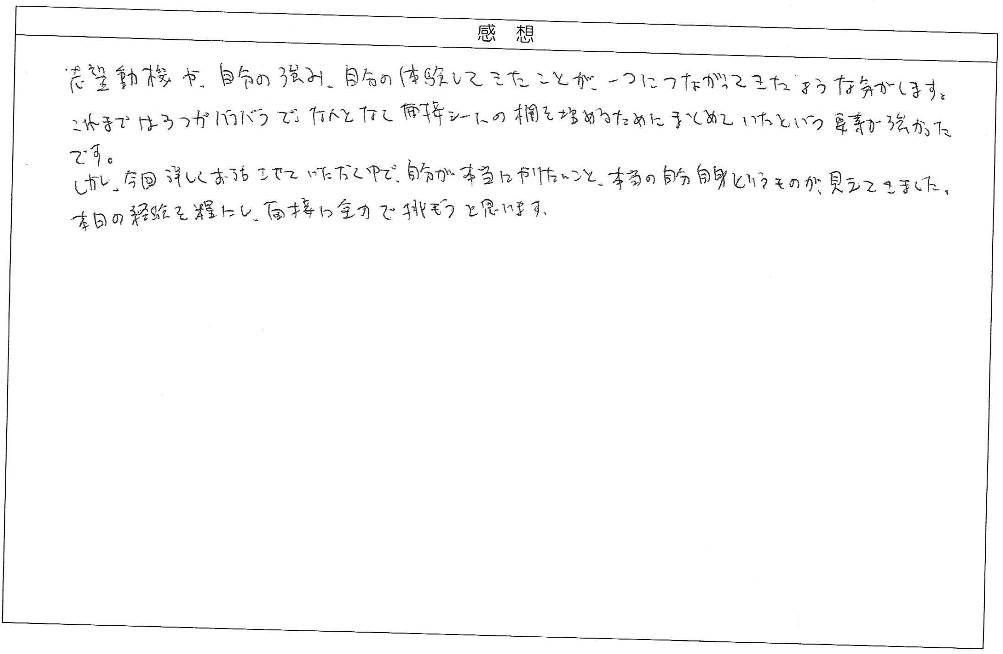 感想
志望動機や、自分の強み、自分の体験してきたことが、一つにつながってきたような気がします。
これまでは3つがバラバラで、なんとなく面接シートの欄を埋めるためにまとめていたという要素が強かった
です。
しかし、今回詳しくお話させていただく中で、自分が本当にやりたいこと、本当の自分自身というものが、見えてきました。
本日の経験を糧にし、面接に全力で挑もうと思います。